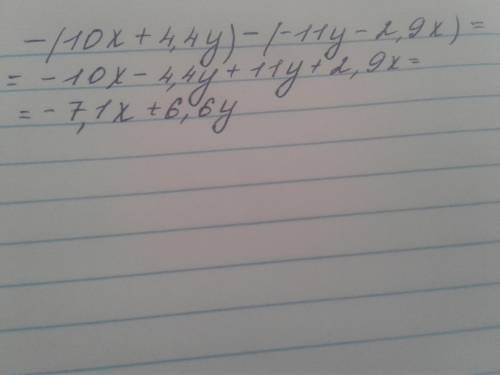 -(10x+4,4y)-(-11y-2,9x)=
=-10x-4,4y+11y+2,9x=
=-7,1x+6,6y